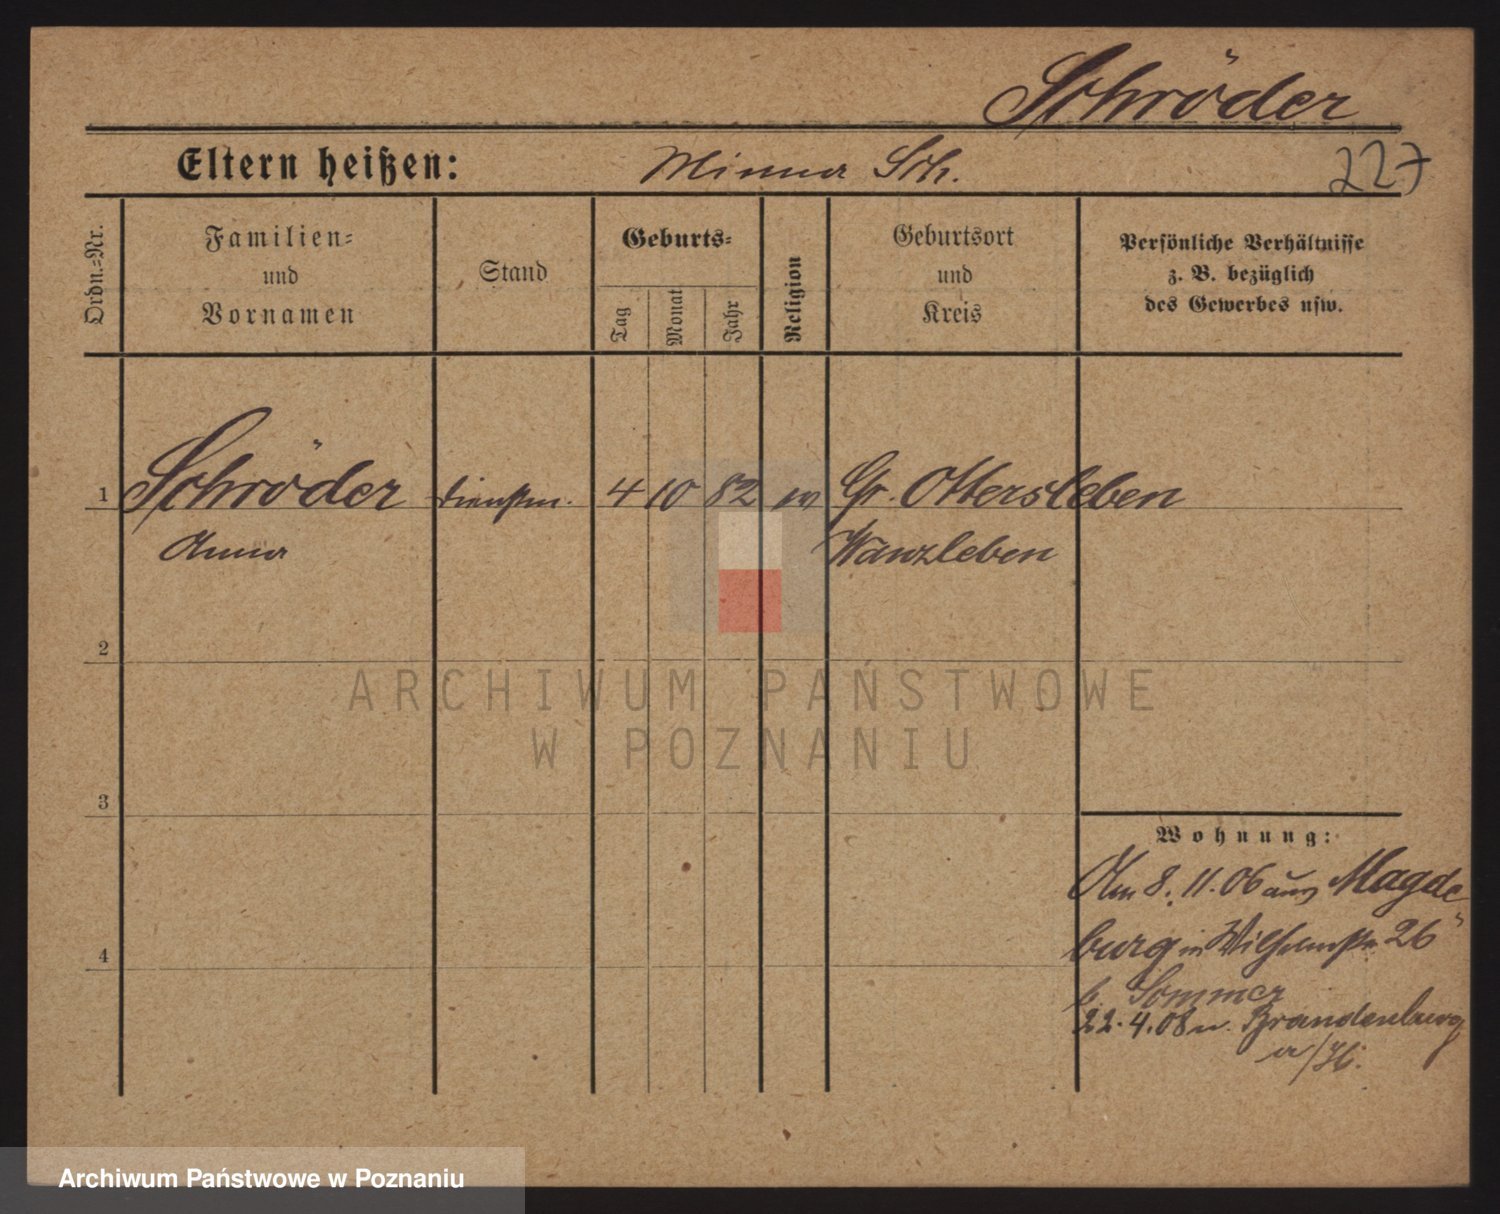 Schröder
Eltern heißen: Minna Sch.
227
Ordn.-Nr.
Familien-
und
Vornamen
Stand
Geburts-
Tag
Monat
Jahr
Religion
Geburtsort
und
Kreis
Persönliche Verhältnisse
z. B. bezüglich
des Gewerbes usw.
1 Schröder dienstm. 4 10 82 ev Gr. Ottersleben
Anna Wanzleben
2
ARCHIWUM PAŃSTWOWE
W POZNANIU
3
Wohnung:
Am 8. 11. 06 aus Magde
burg in Wilhelmstr. 26
b. Sommer
22. 4. 08 n. Brandenburg
a/H.
4
Archiwum Państwowe w Poznaniu